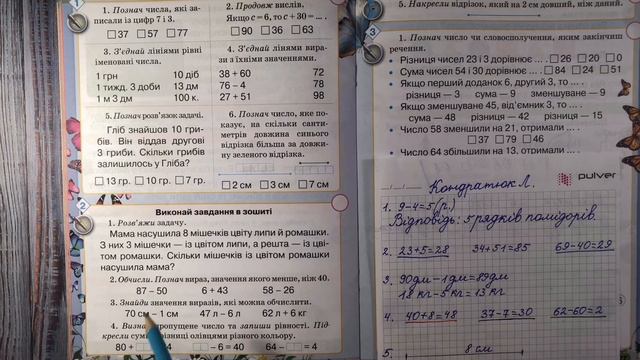 1
1. Познач числа, які за-
писали із цифр 7 і 3.
37 57 77
2. Продовж вислів.
Якщо c = 6, то c + 30 = ... .
90 36 63
3. З'єднай лініями рівні
іменовані числа.
1 грн 10 діб
1 тижд. 3 доби 13 дм
1 м 3 дм 100 к.
4. З'єднай лініями вира-
зи з їхніми значеннями.
38 + 60 72
76 – 4 78
27 + 51 98
5. Познач розв'язок задачі.
Гліб знайшов 10 гри-
бів. Він віддав другові
3 гриби. Скільки грибів
залишилось у Гліба?
13 гр. 10 гр. 7 гр.
6. Познач число, яке по-
казує, на скільки санти-
метрів довжина синього
відрізка більша за довжи-
ну зеленого відрізка.
2 см 3 см 7 см
2
Виконай завдання в зошиті
1. Розв'яжи задачу.
Мама насушила 8 мішечків цвіту липи й ромашки.
З них 3 мішечки — із цвітом липи, а решта — із цві-
том ромашки. Скільки мішечків із цвітом ромашки
насушила мама?
2. Обчисли. Познач вираз, значення якого менше, ніж 40.
87 – 50 6 + 43 58 – 26
3. Знайди значення виразів, які можна обчислити.
70 см – 1 см 47 л – 6 л 62 л + 6 кг
4. пропущене число та запиши рівності. Під-
кресли суми різниці олівцями різного кольору.
80 + 4 – 6 = 40 64 – = 4
5. Накресли відрізок, який на 2 см довший, ніж даний.
3
1. Познач число чи словосполучення, яким закінчиш
речення.
• Різниця чисел 23 і 3 дорівнює ... . 26 20 0
• Сума чисел 54 і 30 дорівнює ... . 84 24 51
• Якщо перший доданок 6, другий 3, то ... .
різниця — 3 сума — 9 зменшуване — 9
• Якщо зменшуване 45, від'ємник 3, то ... .
сума — 48 різниця — 42 різниця — 15
• Число 58 зменшили на 21, отримали ... .
37 79 46
• Число 64 збільшили на 13, отримали ... .
Кондратюк Л.
pulver
1. 9-4=5(р.)
Відповідь: 5 рядків помідорів.
2. 23+5=28 34+51=85 69-40=29
3. 90дм-1дм=89дм
18 кг-5 кг=13 кг
4. 40+8=48 37-7=30 62-60=2
5. 8 см